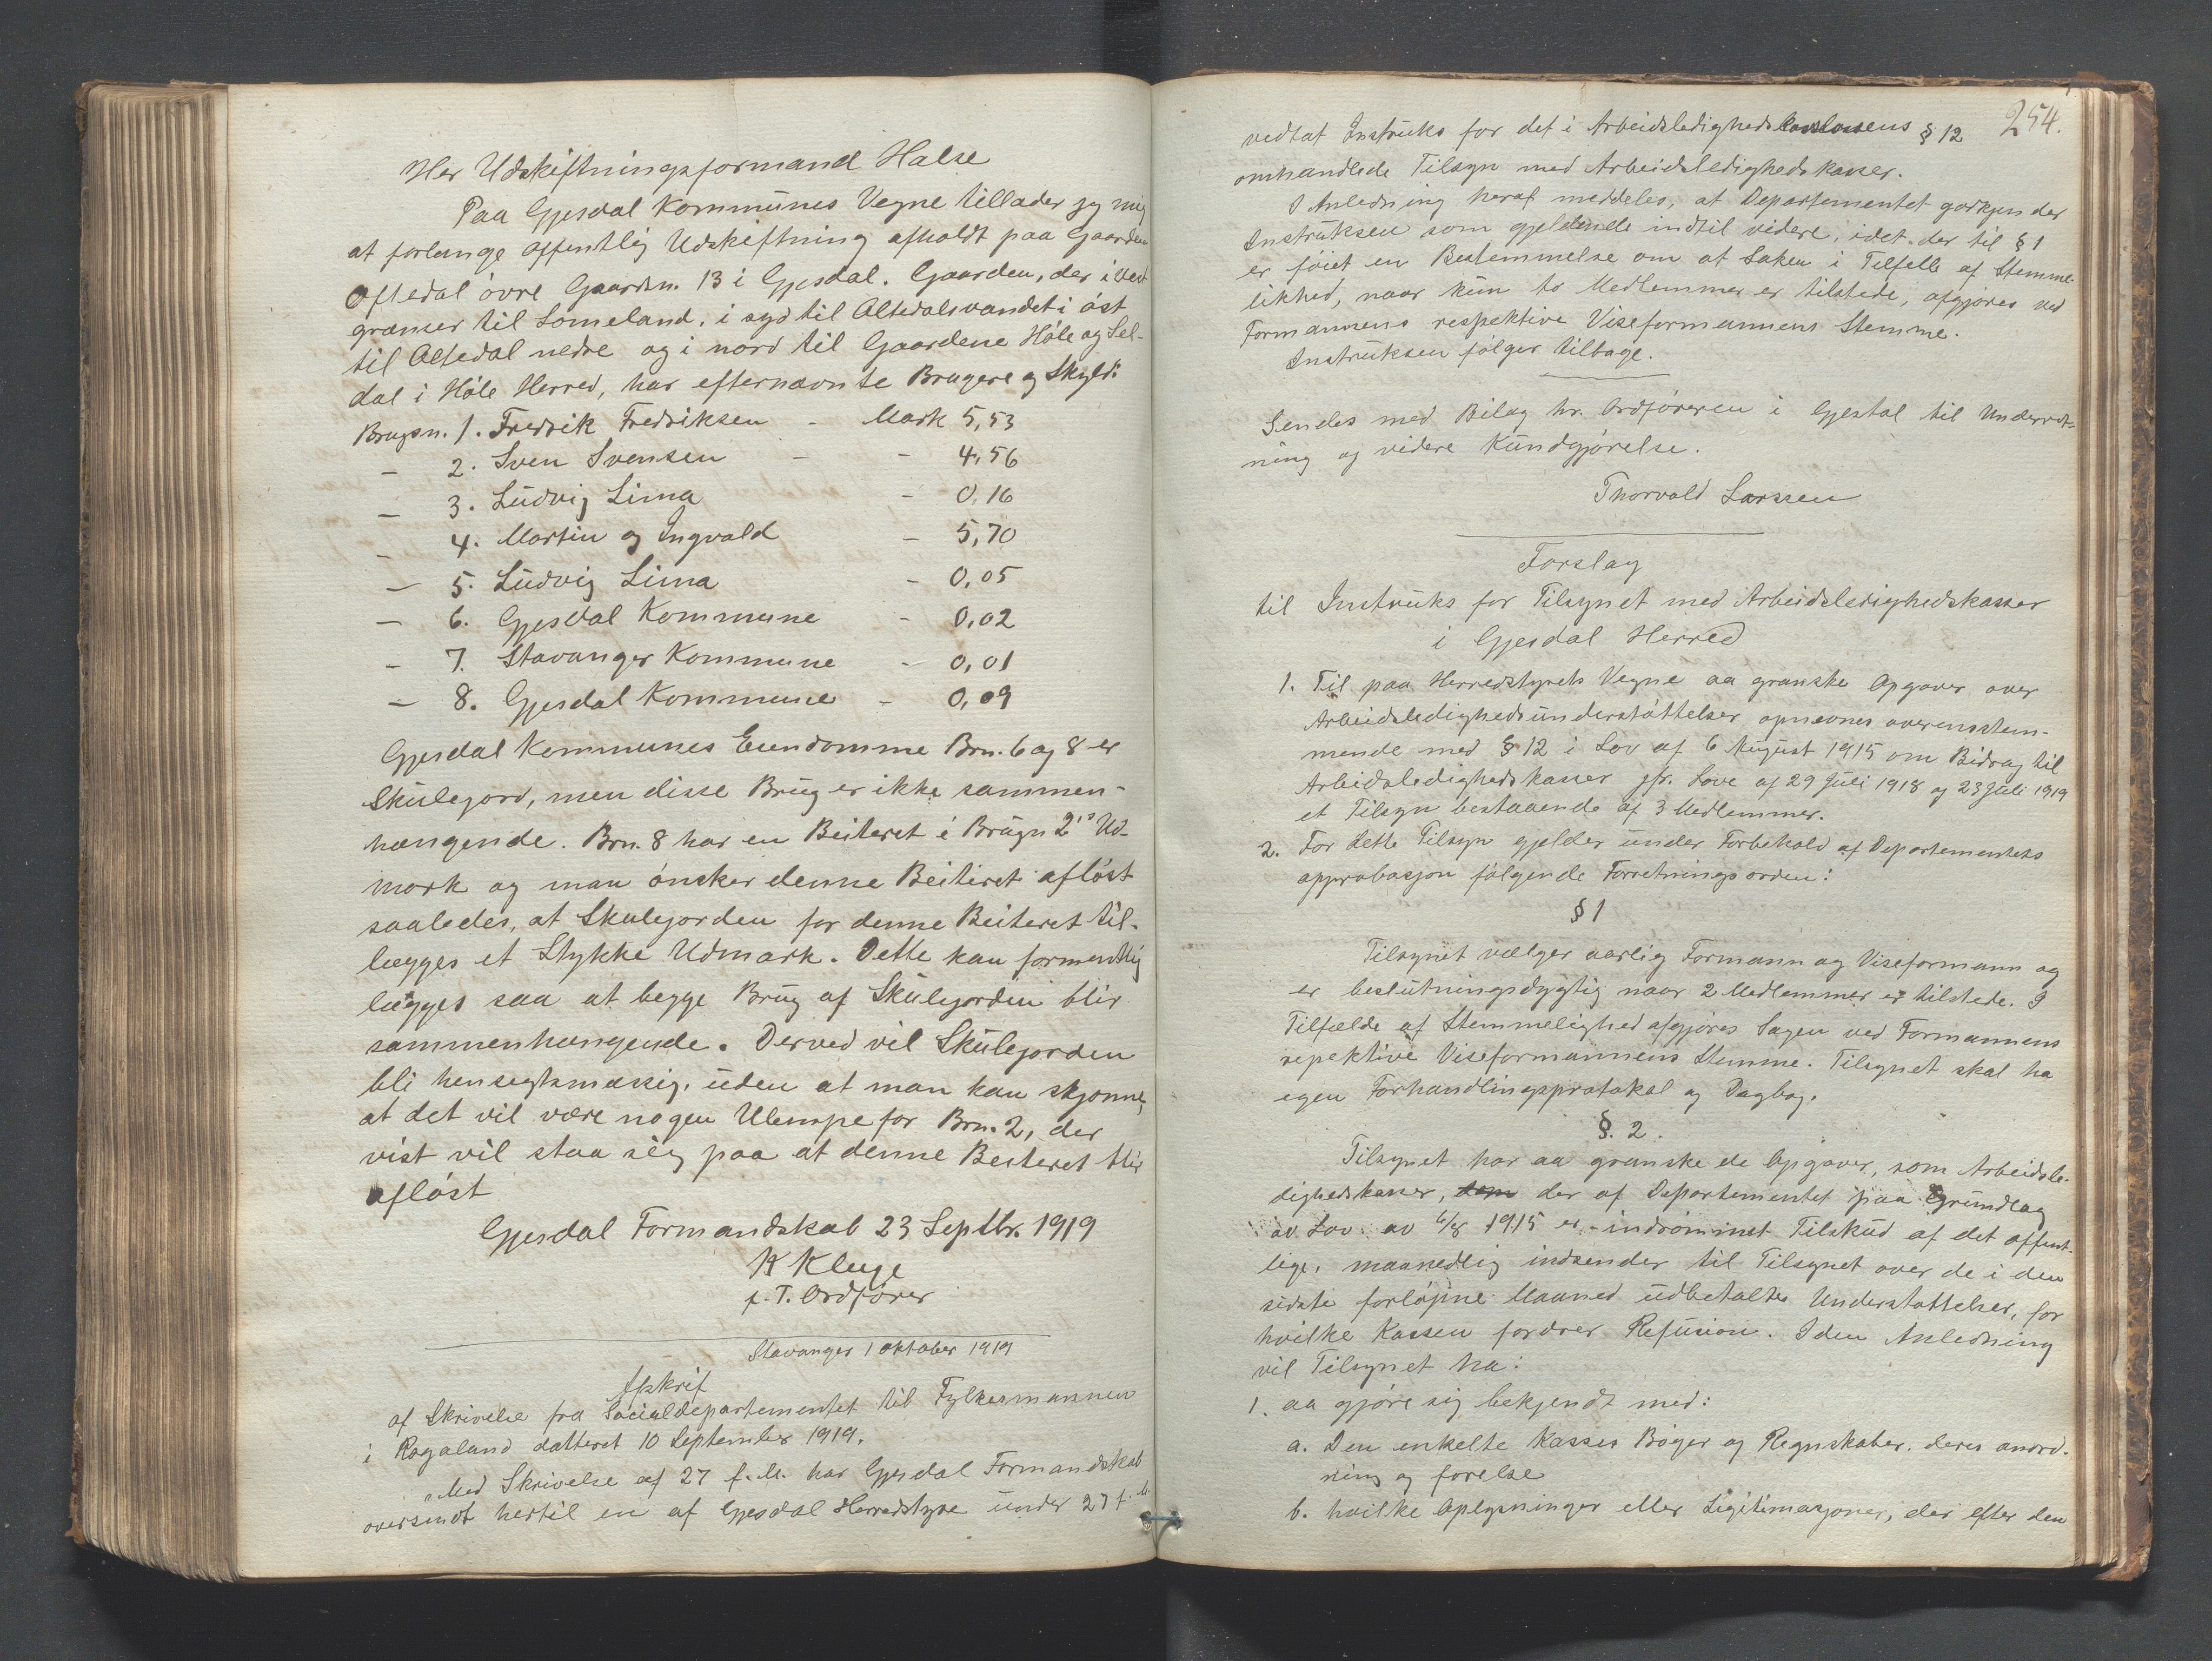 Her Udskiftningsformand Halse
Paa Gjesdal Kommunes Vegne tillader jeg mig
at forlange offentlig Udskiftning afholdt paa Gaarden
Oftedal övre Gaardsn. 13 i Gjesdal. Gaarden, der i vest
grænser til Someland, i syd til Oltedalsvandet i öst
til Oltedal nedre og i nord til Gaardene Höle og Sel-
dal i Höle Herred, har efternævnte Brugere og Skyld:
Brugsn. 1. Fredrik Fredriksen - Mark 5,53
- 2. Sven Svensen - - 4,56
- 3. Ludvig Lima - 0,16
- 4. Martin og Ingvald - 5,70
- 5. Ludvig Lima - 0,05
- 6. Gjesdal Kommune - 0,02
- 7. Stavanger Kommune - 0,01
- 8. Gjesdal Kommune - 0,09
Gjesdal Kommunes Eiendomme Brn. 6 og 8 er
Skulejord, men disse Brug er ikke sammen-
hængende. Brn. 8 har en Beiteret i Brugn 2's Ud-
mark og man önsker denne Beiteret aflöst
saaledes, at Skulejorden for denne Beiteret til-
lægges et Stykke Udmark. Dette kan formentlig
lægges saa at begge Brug af Skulejorden blir
sammenhængende. Derved vil Skulejorden
bli hensigtsmæssig, uden at man kan skjönne,
at det vil være nogen Ulempe for Brn. 2, der
vist vil staa sig paa at denne Beiteret blir
aflöst
Gjesdal Formandskab 23 Septbr. 1919
K Kluge
f. T. Ordförer
Stavanger 1 oktober 1919
Afskrif
af Skrivelse fra Socialdepartementet til Fylkesmannen
i Rogaland datteret 10 September 1919.
"Med Skrivelse af 27 f. M. har Gjesdal Formandskab
oversendt hertil en af Gjesdal Herredstyre under 27 f. M.
254.
vedtat Instruks for det i Arbeidsledigheds § 12
omhandlede Tilsyn med Arbeidsledighedskasser.
I Anledning heraf meddeles, at Departementet godkjender
Instruksen som gjeldende indtil videre, idet der til § 1
er föiet en Bestemmelse om at Saken i Tilfelle af Stemme-
likhed, naar kun to Medlemmer er tilstede, afgjöres ved
Formannens respektive Viseformannens Stemme.
Instruksen fölger tilbage.
Sendes med Bilag hr. Ordföreren i Gjestal til Underret-
ning og videre Kundgjörelse.
Thorvald Larssen
Forslag
til Instruks for Tilsynet med Arbeidsledighedskasser
i Gjesdal Herred
1. Til paa Herredstyrets Vegne aa granske Opgaver over
Arbeidsledighedsunderstöttelser opnevnes overensstem-
mende med § 12 i Lov af 6 August 1915 om Bidrag til
Arbeidsledighedskasser jfr. Love af 29 Juli 1918 og 23 Juli 1919
et Tilsyn bestaaende af 3 Medlemmer.
2. For dette Tilsyn gjelder under Forbehold af Departementets
approbasjon fölgende Forretningsorden:
§ 1
Tilsynet vælger aarlig Formann og Viseformann og
er beslutningsdygtig naar 2 Medlemmer er tilstede. I
Tilfælde af Stemmelighed afgjöres Sagen ved Formannens
repektive Viseformannens Stemme. Tilsynet skal ha
egen Forhandlingsprotokol og Dagbog.
§. 2.
Tilsynet har aa granske de Opgaver, som Arbeidsle-
dighedskasser, der af Departementet paa Grundlag
av Lov av 6/8 1915 er indrömmet Tilskud af det offent-
lige, maanedlig indsender til Tilsynet over de i den
sidste forlöpne Maaned udbetalte Understöttelser, for
hvilke Kassen fordrer Refusion. I den Anledning
vil Tilsynet ha:
1. aa gjöre sig bekjendt med:
a. Den enkelte Kasses Böger og Regnskaber, deres anord-
ning og förelse
b. hvilke Oplysninger eller Legitimasjoner, der efter den